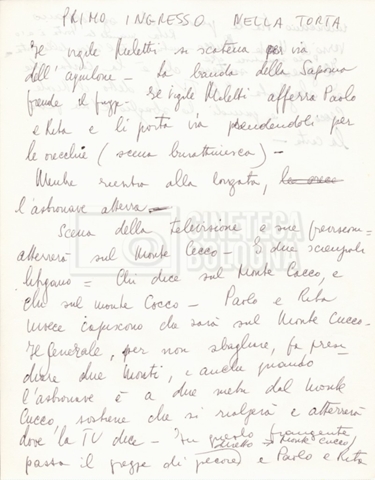 PRIMO INGRESSO NELLA TORTA
Il vigile Meletti si scatena per via
dell'aquilone - La banda della Saponia
prende il fugge. Il vigile Meletti afferra Paolo
e Rita e li porta via prendendoli per
le orecchie (scena burattinesca) -
Mentre rientra alla borgata,
l'astronave atterra
Scena della televisione e sue previsioni =
atterrerà sul Monte Cecco - E due scienziati
litigano = Chi dice sul Monte Cacco, e
chi sul monte Cocco - Paolo e Rita
invece capiscono che sarà sul Monte Cucco -
Il Generale, per non sbagliare, fa presi-
diare due Monti, e anche quando
l'astronave è a due metri dal Monte
Cucco sostiene che si rialzerà e atterrerà
dove la TV dice - In questo frangente
(diretto → Monte Cucco)
passa il gregge di pecore e Paolo e Rita
CINETECA
BOLOGNA